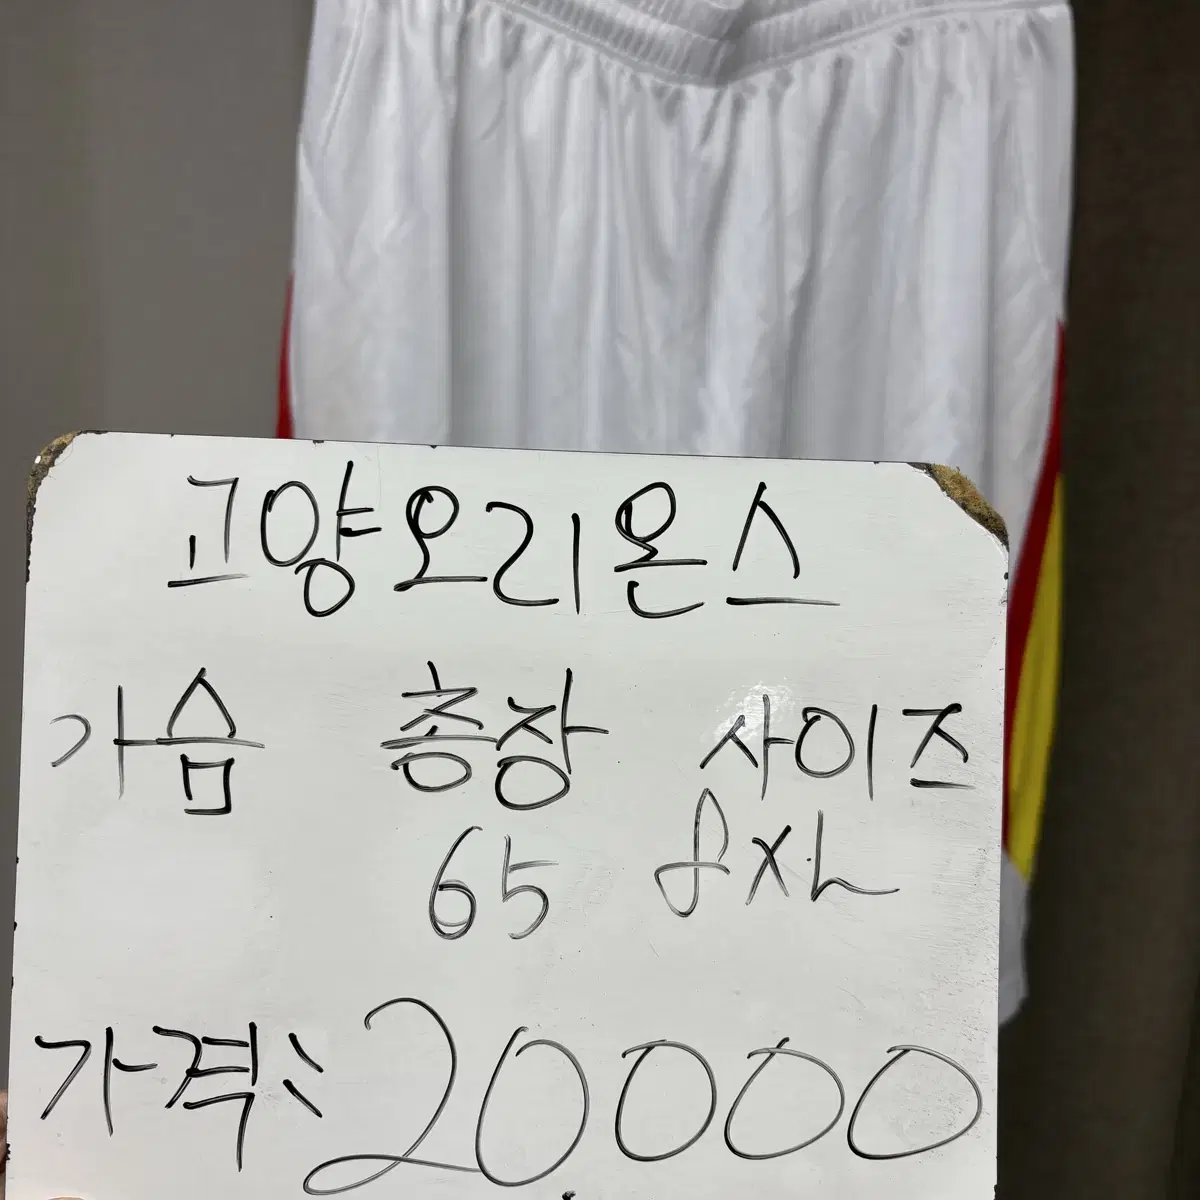 고양오리온스
가슴 총장 사이즈
65 8XL
가격: 20000